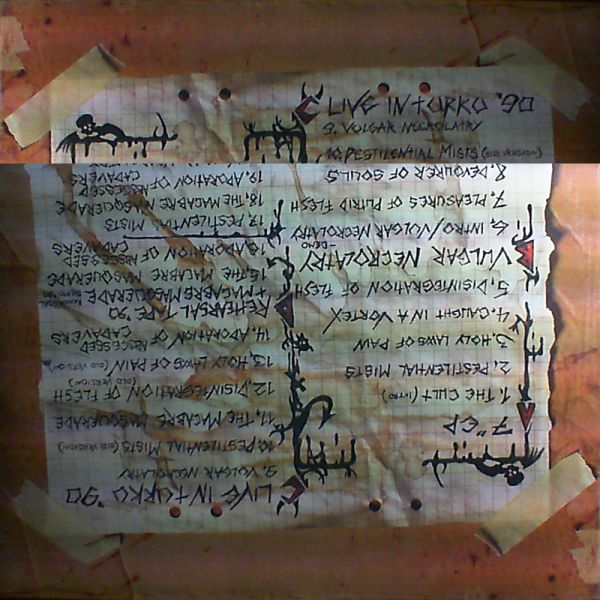 LIVE IN TURKO '90
9. VULGAR NECROLATRY
10. PESTILENTIAL MISTS (OLD VERSION)
7" EP
1. THE CULT (INTRO)
2. PESTILENTIAL MISTS
3. HOLY LAWS OF PAIN
4. CAUGHT IN A VORTEX
5. DISINTEGRATION OF FLESH
VULGAR NECROLATRY
-DEMO
6. INTRO/VULGAR NECROLATRY
7. PLEASURES OF PUTRID FLESH
8. DEVOURER OF SOULS
LIVE IN TURKO '90
9. VULGAR NECROLATRY
10. PESTILENTIAL MISTS (OLD VERSION)
11. THE MACABRE MASQUERADE
12. DISINTEGRATION OF FLESH
(OLD VERSION)
13. HOLY LAWS OF PAIN (OLD VERSION)
14. ADORATION OF ABSCESSED
CADAVERS
REHEARSAL TAPE '90
+ MACABRE MASQUERADE
15. THE MACABRE MASQUERADE
16. ADORATION OF ABSCESSED
CADAVERS
17. PESTILENTIAL MISTS
18. THE MACABRE MASQUERADE
19. ADORATION OF ABSCESSED
CADAVERS